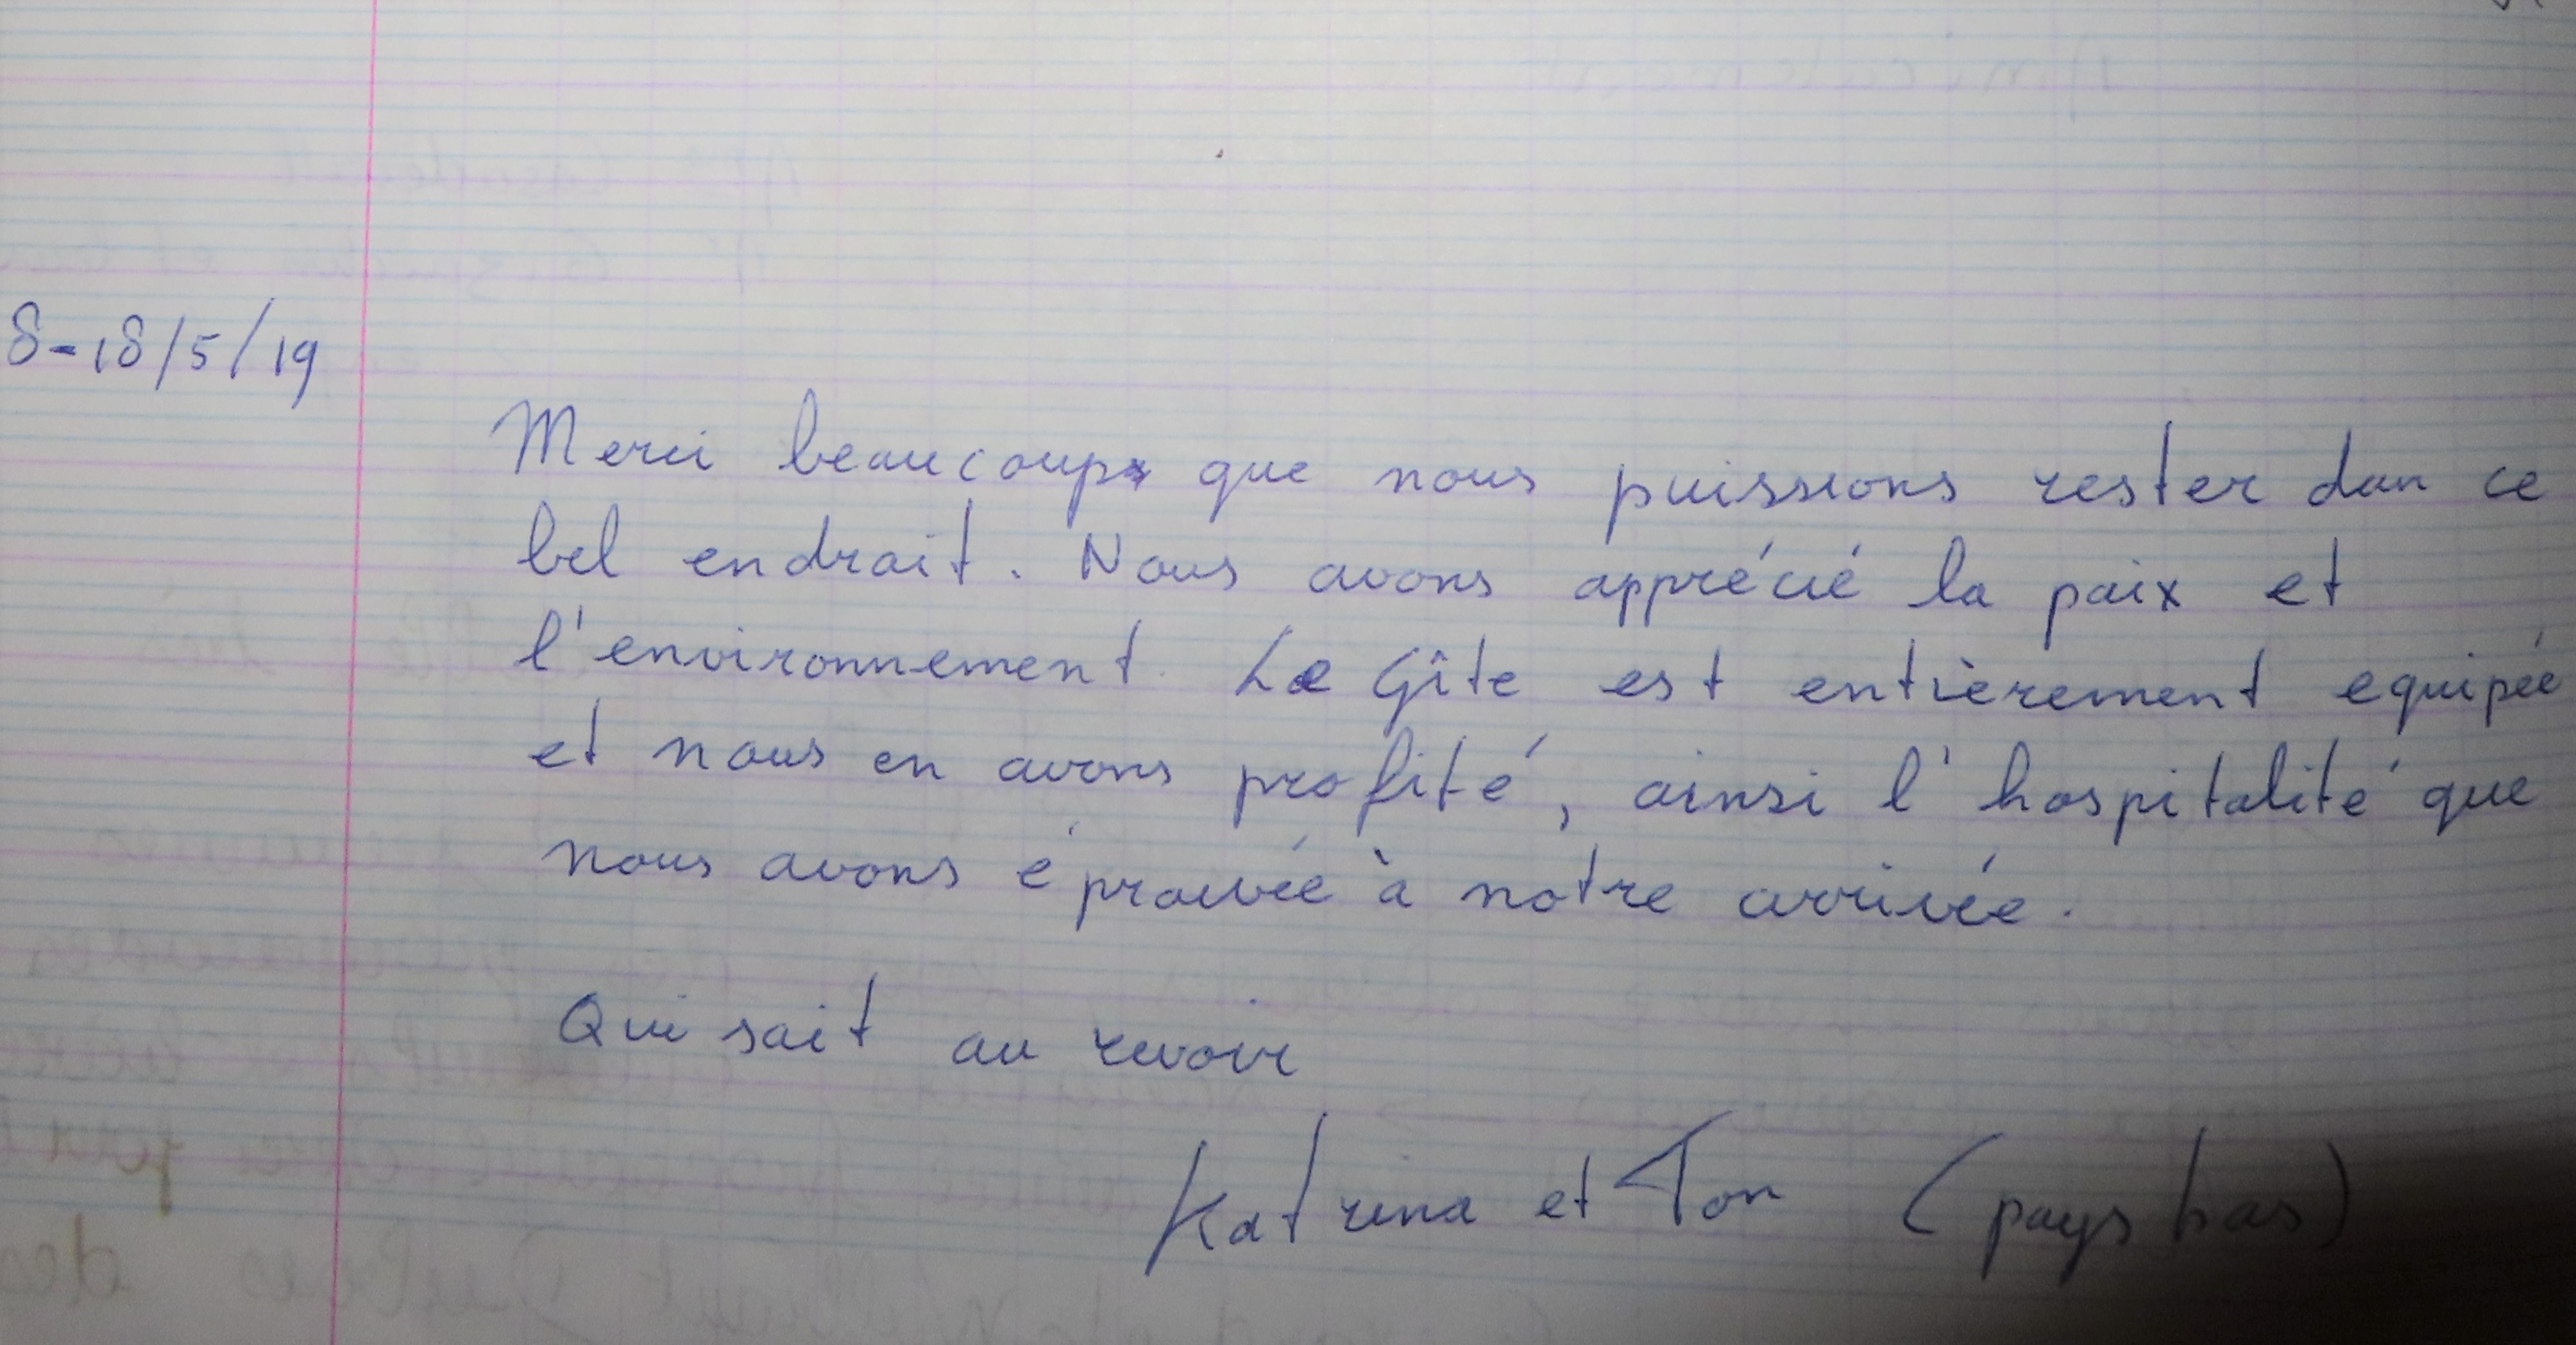 8-18/5/19
Merci beaucoup que nous puissions rester dan ce
bel endrait. Nous avons apprécié la paix et
l'environnement. Le Gîte est entièrement equipée
et nous en avons profité, ainsi l'hospitalité que
nous avons éprouvée à notre arrivée.
Qui sait au revoir
Katrina et Ton (pays bas)